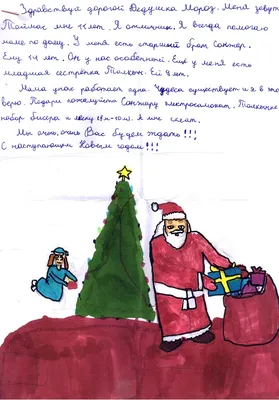 Здравствуй дорогой Дедушка Мороз. Меня зовут
мне 11 лет. Я отличник. Я всегда помогаю
маме по дому. У меня есть старший брат Санжар.
Ему 14 лет. Он у нас особенный. Ещё у меня есть
младшая сестрёнка Толкын. Ей 9 лет.
Мама у нас работает одна. Чудеса существует и я в это
верю. Подари пожалуйста Санжару электросамокат. Толкынке
набор бисера и леску. А мне
Мы очень, очень Вас будем ждать!!!
С наступающим Новым годом!!!